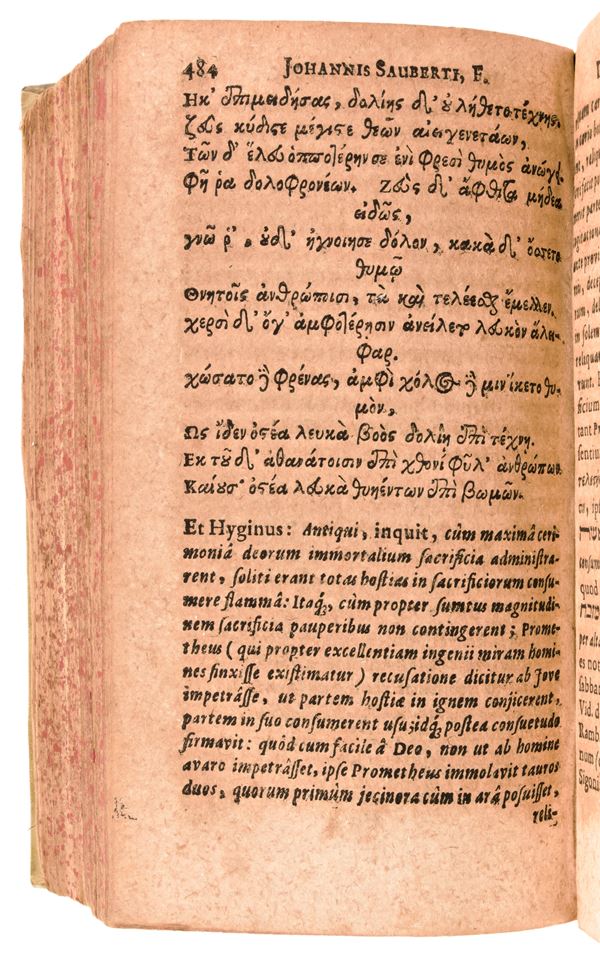 484 JOHANNIS SAUBERTI, F.
Ηκ᾽ ἐπιμειδήσας, δολίης δ᾽ οὐ λήθετο τέχνης,
ζεῦς κύδιστε μέγιστε θεῶν αἰειγενετάων,
Τῶν δ᾽ ἕλευ ὁπποτέρην σε ἐνὶ φρεσὶ θυμὸς ἀνώγει.
Φῆ ῥα δολοφρονέων. Ζεῦς δ᾽ ἄφθιτα μήδεα
εἰδῶς,
γνῶ ῥ᾽, οὐδ᾽ ἠγνοίησε δόλον, κακὰ δ᾽ ὄσσετο
θυμῷ
Θνητοῖς ἀνθρώποισι, τὰ καὶ τελέεσθαι ἔμελλεν.
χερσὶ δ᾽ ὅγ᾽ ἀμφοτέρῃσιν ἀνείλετο λευκὸν ἄλει-
φαρ.
χώσατο δὲ φρένας, ἀμφὶ χόλος δέ μιν ἵκετο θυ-
μὸν,
Ως ἴδεν ὀστέα λευκὰ βοὸς δολίῃ ἐπὶ τέχνῃ.
Εκ τοῦ δ᾽ ἀθανάτοισιν ἐπὶ χθονὶ φῦλ᾽ ἀνθρώπων
Καίουσ᾽ ὀστέα λευκὰ θυηέντων ἐπὶ βωμῶν.
Et Hyginus: Antiqui, inquit, cùm maximâ ceri-
moniâ deorum immortalium sacrificia administra-
rent, soliti erant totas hostias in sacrificiorum consu-
mere flammâ: Itaq;, cùm propter sumtus magnitudi-
nem sacrificia pauperibus non contingerent; Prome-
theus (qui propter excellentiam ingenii miram homi-
nes finxisse existimatur) recusatione dicitur ab Jove
impetrâsse, ut partem hostiæ in ignem conjicerent,
partem in suo consumerent usu: idq; postea consuetudo
firmavit: quôd cum facile â Deo, non ut ab homine
avaro impetrâsset, ipse Prometheus immolavit tauros
duos, quorum primùm jecinora cùm in arâ posuisset,
reli-